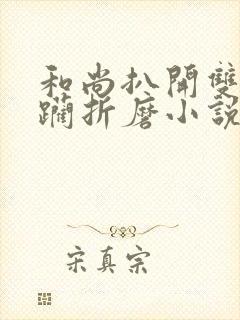 和尚扒開雙
躪折磨小說
宋真宗